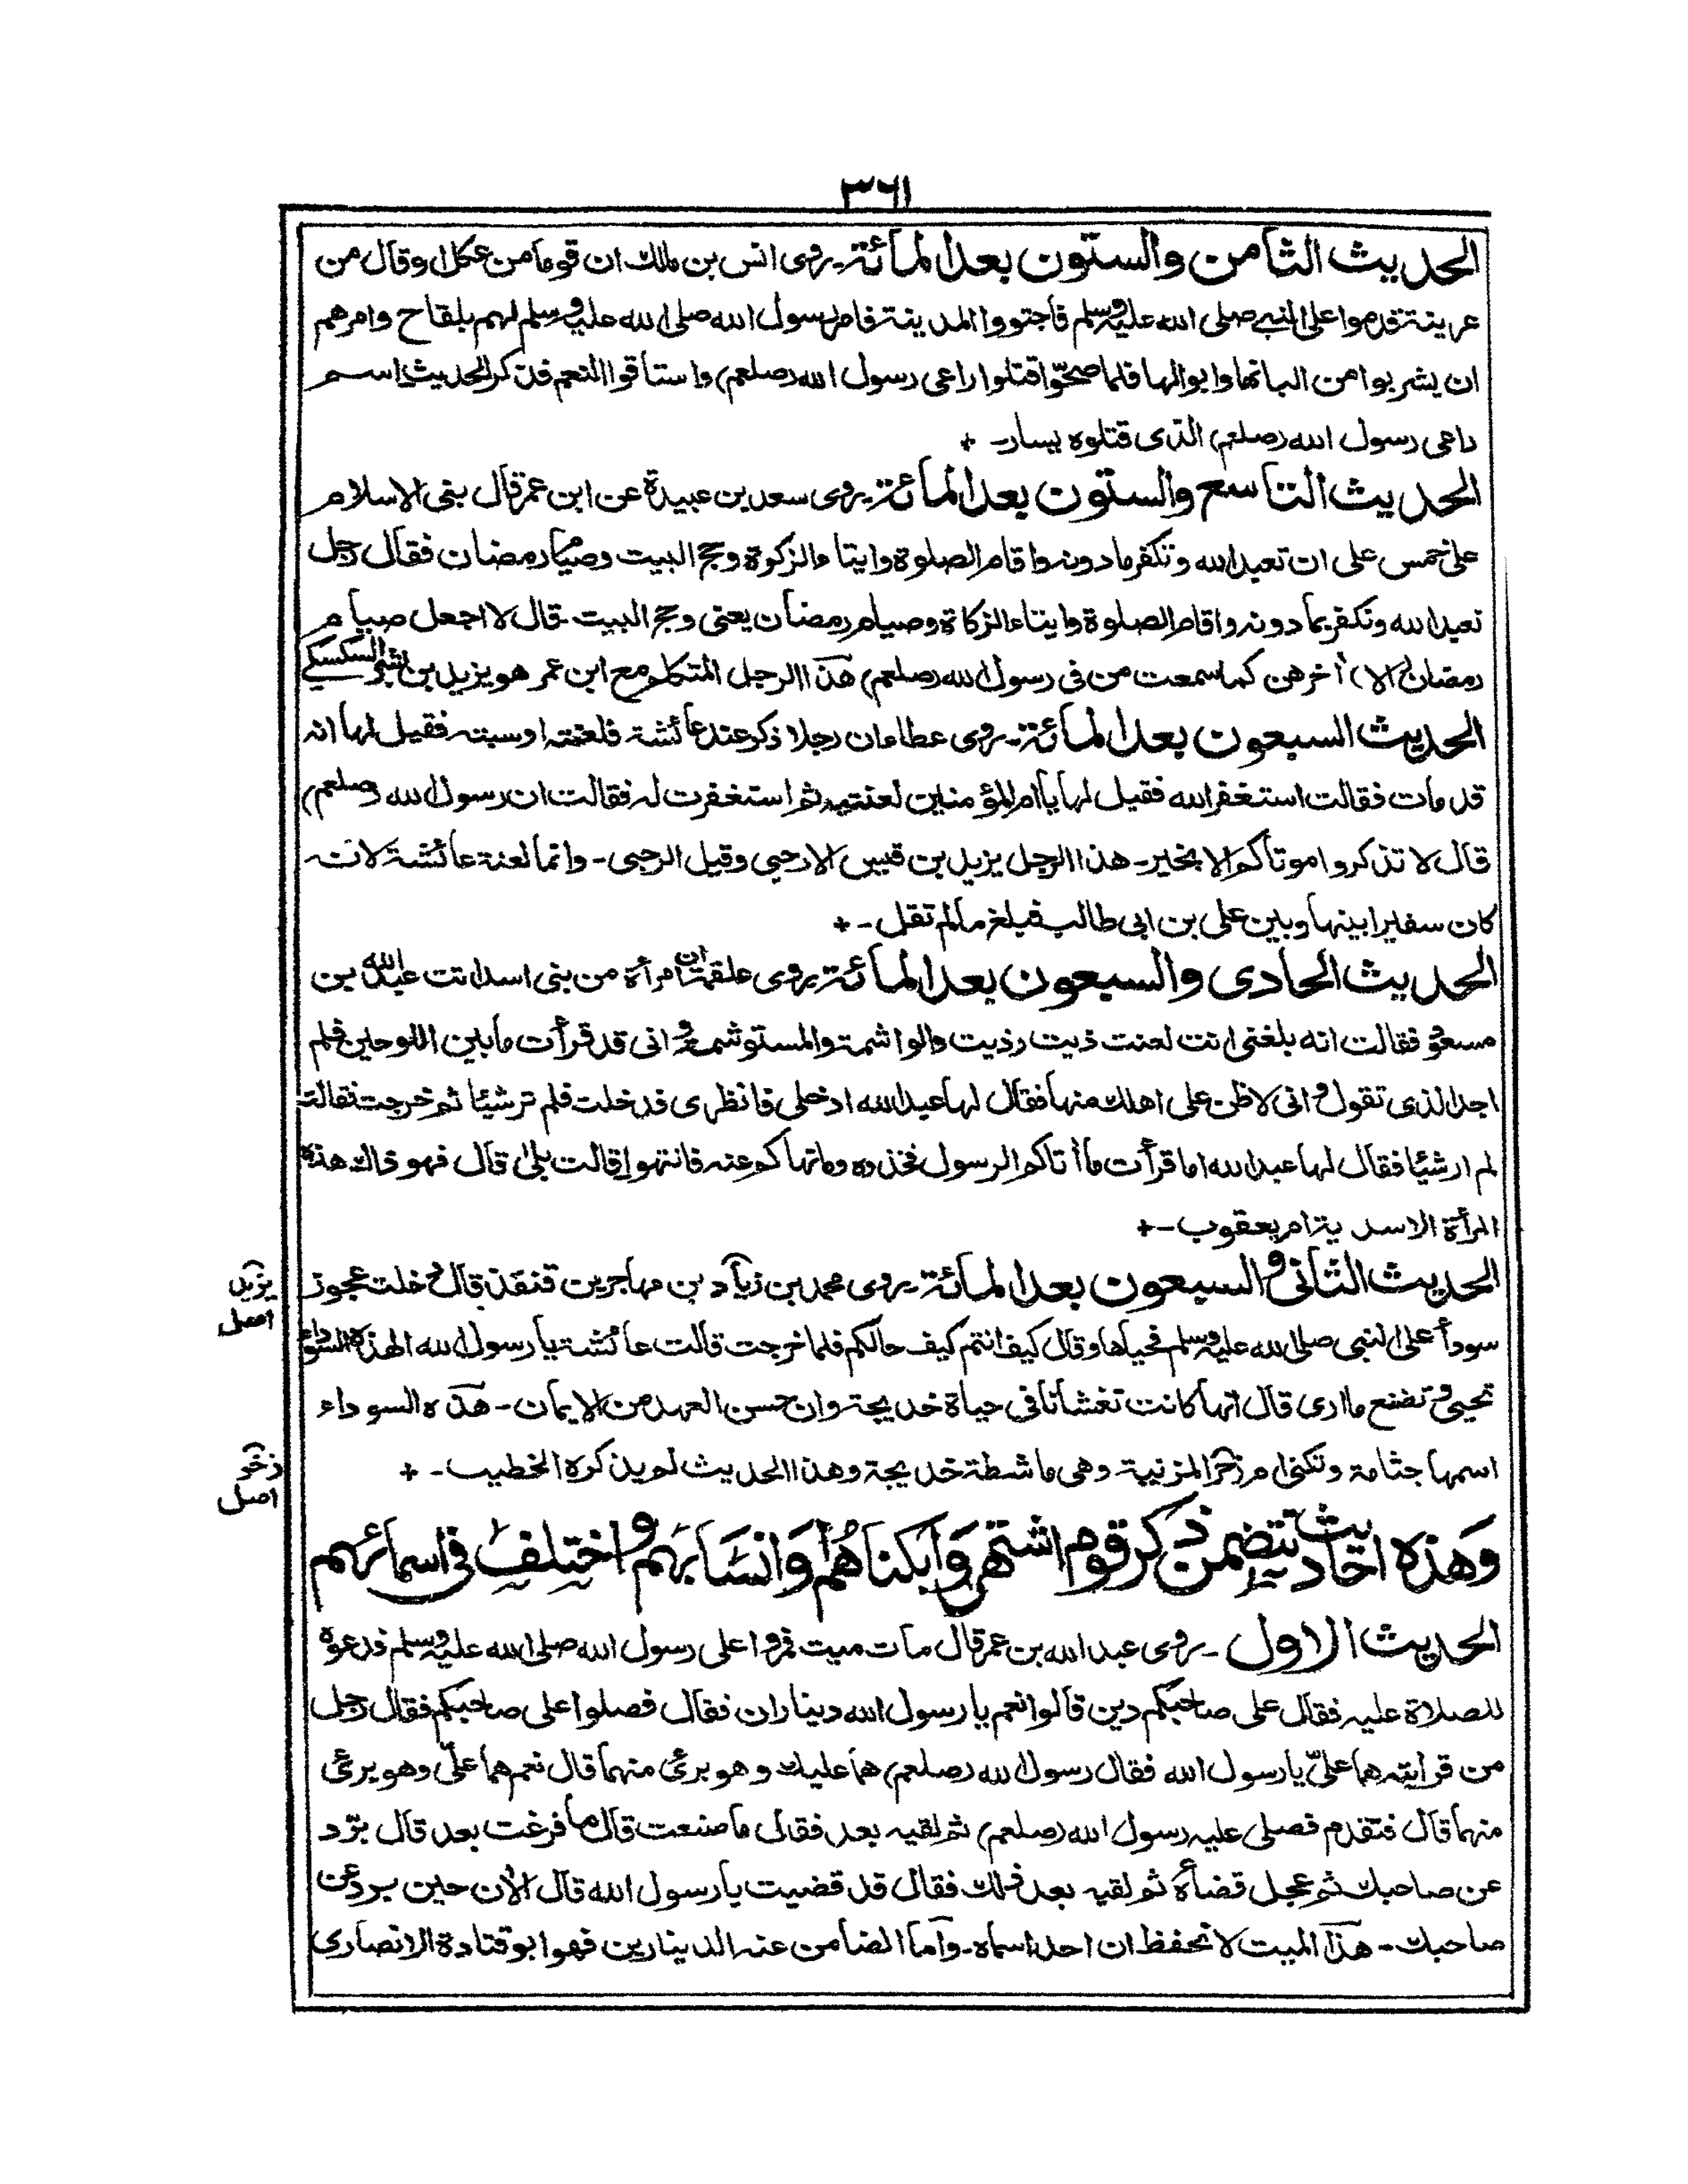 ٣٦١
الحديث الثامن والستون بعد المائة ـ روى انس بن مالك ان قوما من عكل او قال من
عرينة قدموا على النبي صلى الله عليه وسلم فاجتووا المدينة فامر رسول الله صلى الله عليه وسلم لهم بلقاح وامرهم
ان يشربوا من البانها وابوالها فلما صحّوا قتلوا راعى رسول الله (صلعم) واستاقوا النعم فذكر الحديث اسم
راعى رسول الله (صلعم) الذى قتلوه يسار ـ +
الحديث التاسع والستون بعد المائة ـ روى سعد بن عبيدة عن ابن عمر قال بنى الاسلام
على خمس على ان تعبد الله وتكفر ما دونه واقام الصلوة وايتاء الزكوة وحج البيت وصيام رمضان فقال رجل
تعبد الله وتكفر بما دونه واقام الصلوة وايتاء الزكاة وصيام رمضان يعنى وحج البيت ـ قال لا اجعل صيام
رمضان (الا) أخرهن كما سمعت من فى رسول الله (صلعم) هذا الرجل المتكلم مع ابن عمر هو يزيد بن بشر السكسكي
الحديث السبعون بعد المائة ـ روى عطاء ان رجلا ذكر عند عائشة فلعنته او سبته فقيل لها انه
قد مات فقالت استغفر الله فقيل لها يا ام المؤمنين لعنتيه ثم استغفرت له فقالت ان رسول الله (صلعم)
قال لا تذكروا موتاكم الا بخير ـ هذا الرجل يزيد بن قيس الارحبى وقيل الرحبى ـ وانما لعنة عائشة لانه
كان سفيرا بينها وبين على بن ابى طالب فبلغه مالم تقل ـ +
الحديث الحادى والسبعون بعد المائة ـ روى علقمة ان امرأة من بنى اسد اتت عبد الله بن
مسعود فقالت انه بلغنى انت لعنت ذيت وذيت والواشمة والمستوشمة وانى قد قرأت ما بين اللوحين فلم
اجد الذى تقول وانى لاظن على اهلك منها فقال لها عبد الله ادخلى فانظرى فدخلت فلم تر شيئا ثم خرجت فقالت
لم ار شيئا فقال لها عبد الله اما قرأت ما أتاكم الرسول فخذوه وما نهاكم عنه فانتهوا قالت بلى قال فهو ذاك هذه
المرأة الاسدية ام يعقوب ـ +
الحديث الثانى والسبعون بعد المائة ـ روى محمد بن زياد بن مهاجر بن قنفذ قال دخلت عجوز
يزيد
اصل
سودأ على النبى صلى الله عليه وسلم فحياها وقال كيف انتم كيف حالكم فلما خرجت قالت عائشة يا رسول الله الهذه السوداء
تحيى وتصنع ما ارى قال انها كانت تغشانا فى حياة خديجة وان حسن العهد من الايمان ـ هذه السوداء
اسمها جثامة وتكنى ام زفر المزنية وهى ماشطة خديجة وهذا الحديث لم يذكره الخطيب ـ +
زخر
اصل
وَهذه احاديث تتضمن ذكر قوم اشتهروا بكناهُم وَانسَابهم واختلف فى اسمائهم
الحديث الاول ـ روى عبد الله بن عمر قال مات ميت فمروا على رسول الله صلى الله عليه وسلم فدعوه
للصلاة عليه فقال على صاحبكم دين قالوا نعم يا رسول الله ديناران فقال فصلوا على صاحبكم فقال رجل
من قرابته هما علىّ يا رسول الله فقال رسول الله (صلعم) هما عليك وهو برئ منهما قال نعم هما علىّ وهو برئ
منهما قال فتقدم فصلى عليه رسول الله (صلعم) ثم لقيه بعد فقال ما صنعت قال ما فرغت بعد قال برّد
عن صاحبك ثم عجل قضاءه ثم لقيه بعد ذلك فقال قد قضيت يا رسول الله قال الأن حين برد عن
صاحبك ـ هذا الميت لا نحفظ ان احدا سماه ـ وأما الضامن عنه الدينارين فهو ابو قتادة الانصارى